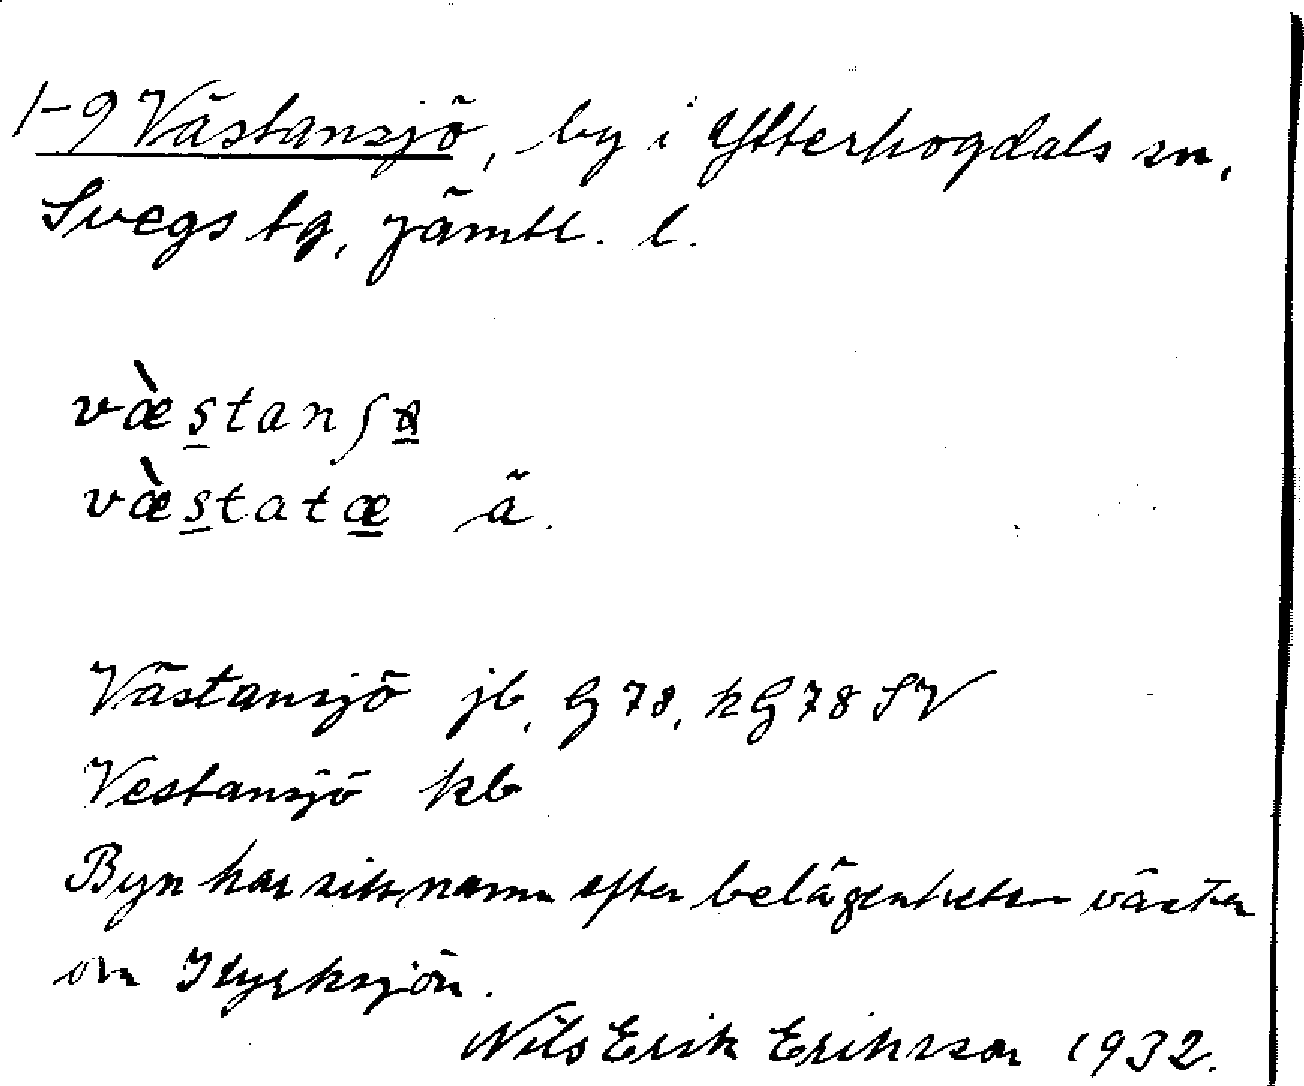 1-9 Västansjö, by i Ytterhogdals sn,
Svegs tg, Jämtl. l.
væ̀s̲tanʃ
væ̀s̲tatæ̳ ä.
Västansjö jb, G 78, kG 78 SV
Vestansjö kb
Byn har sitt namn efter belägenheten väster
om Kyrksjön.
Nils Erik Eriksson 1932.